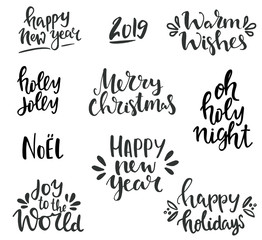 happy
new year
2019
Warm
Wishes
holly
jolly
Merry
christmas
oh
holy
night
NoËl
HAPPY
new
year
Joy
to the
World
happy
holidays